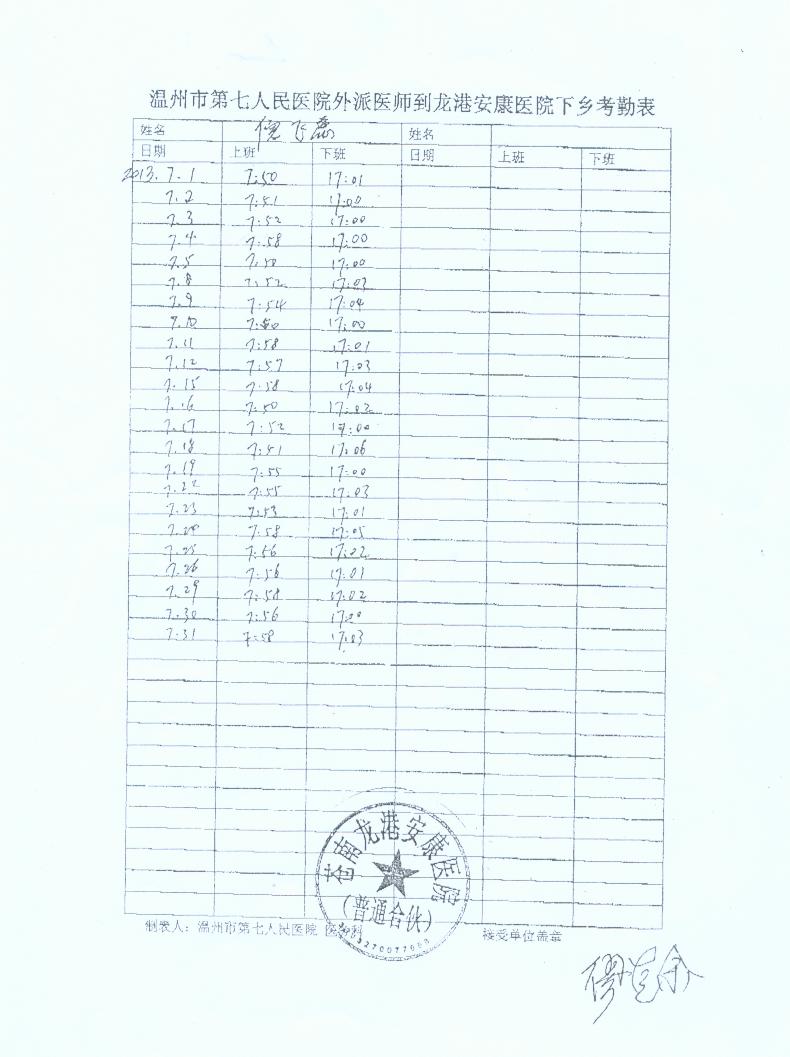 温州市第七人民医院外派医师到龙港安康医院下乡考勤表
姓名 倪飞 姓名
日期 上班 下班 日期 上班 下班
2013.7.1 7:50 17:01
7.2 7:51 17:00
7.3 7:52 17:00
7.4 7:58 17:00
7.5 7:50 17:00
7.8 7:52 17:03
7.9 7:54 17:04
7.10 7:50 17:00
7.11 7:58 17:01
7.12 7:57 17:03
7.15 7:58 17:04
7.16 7:50 17:02
7.17 7:52 17:00
7.18 7:51 17:06
7.19 7:55 17:00
7.22 7:55 17:03
7.23 7:53 17:01
7.24 7:58 17:05
7.25 7:56 17:02
7.26 7:56 17:01
7.29 7:58 17:02
7.30 7:56 17:00
7.31 7:58 17:03
苍南龙港安康医院
(普通合伙)
制表人：温州市第七人民医院 医务科 接受单位盖章